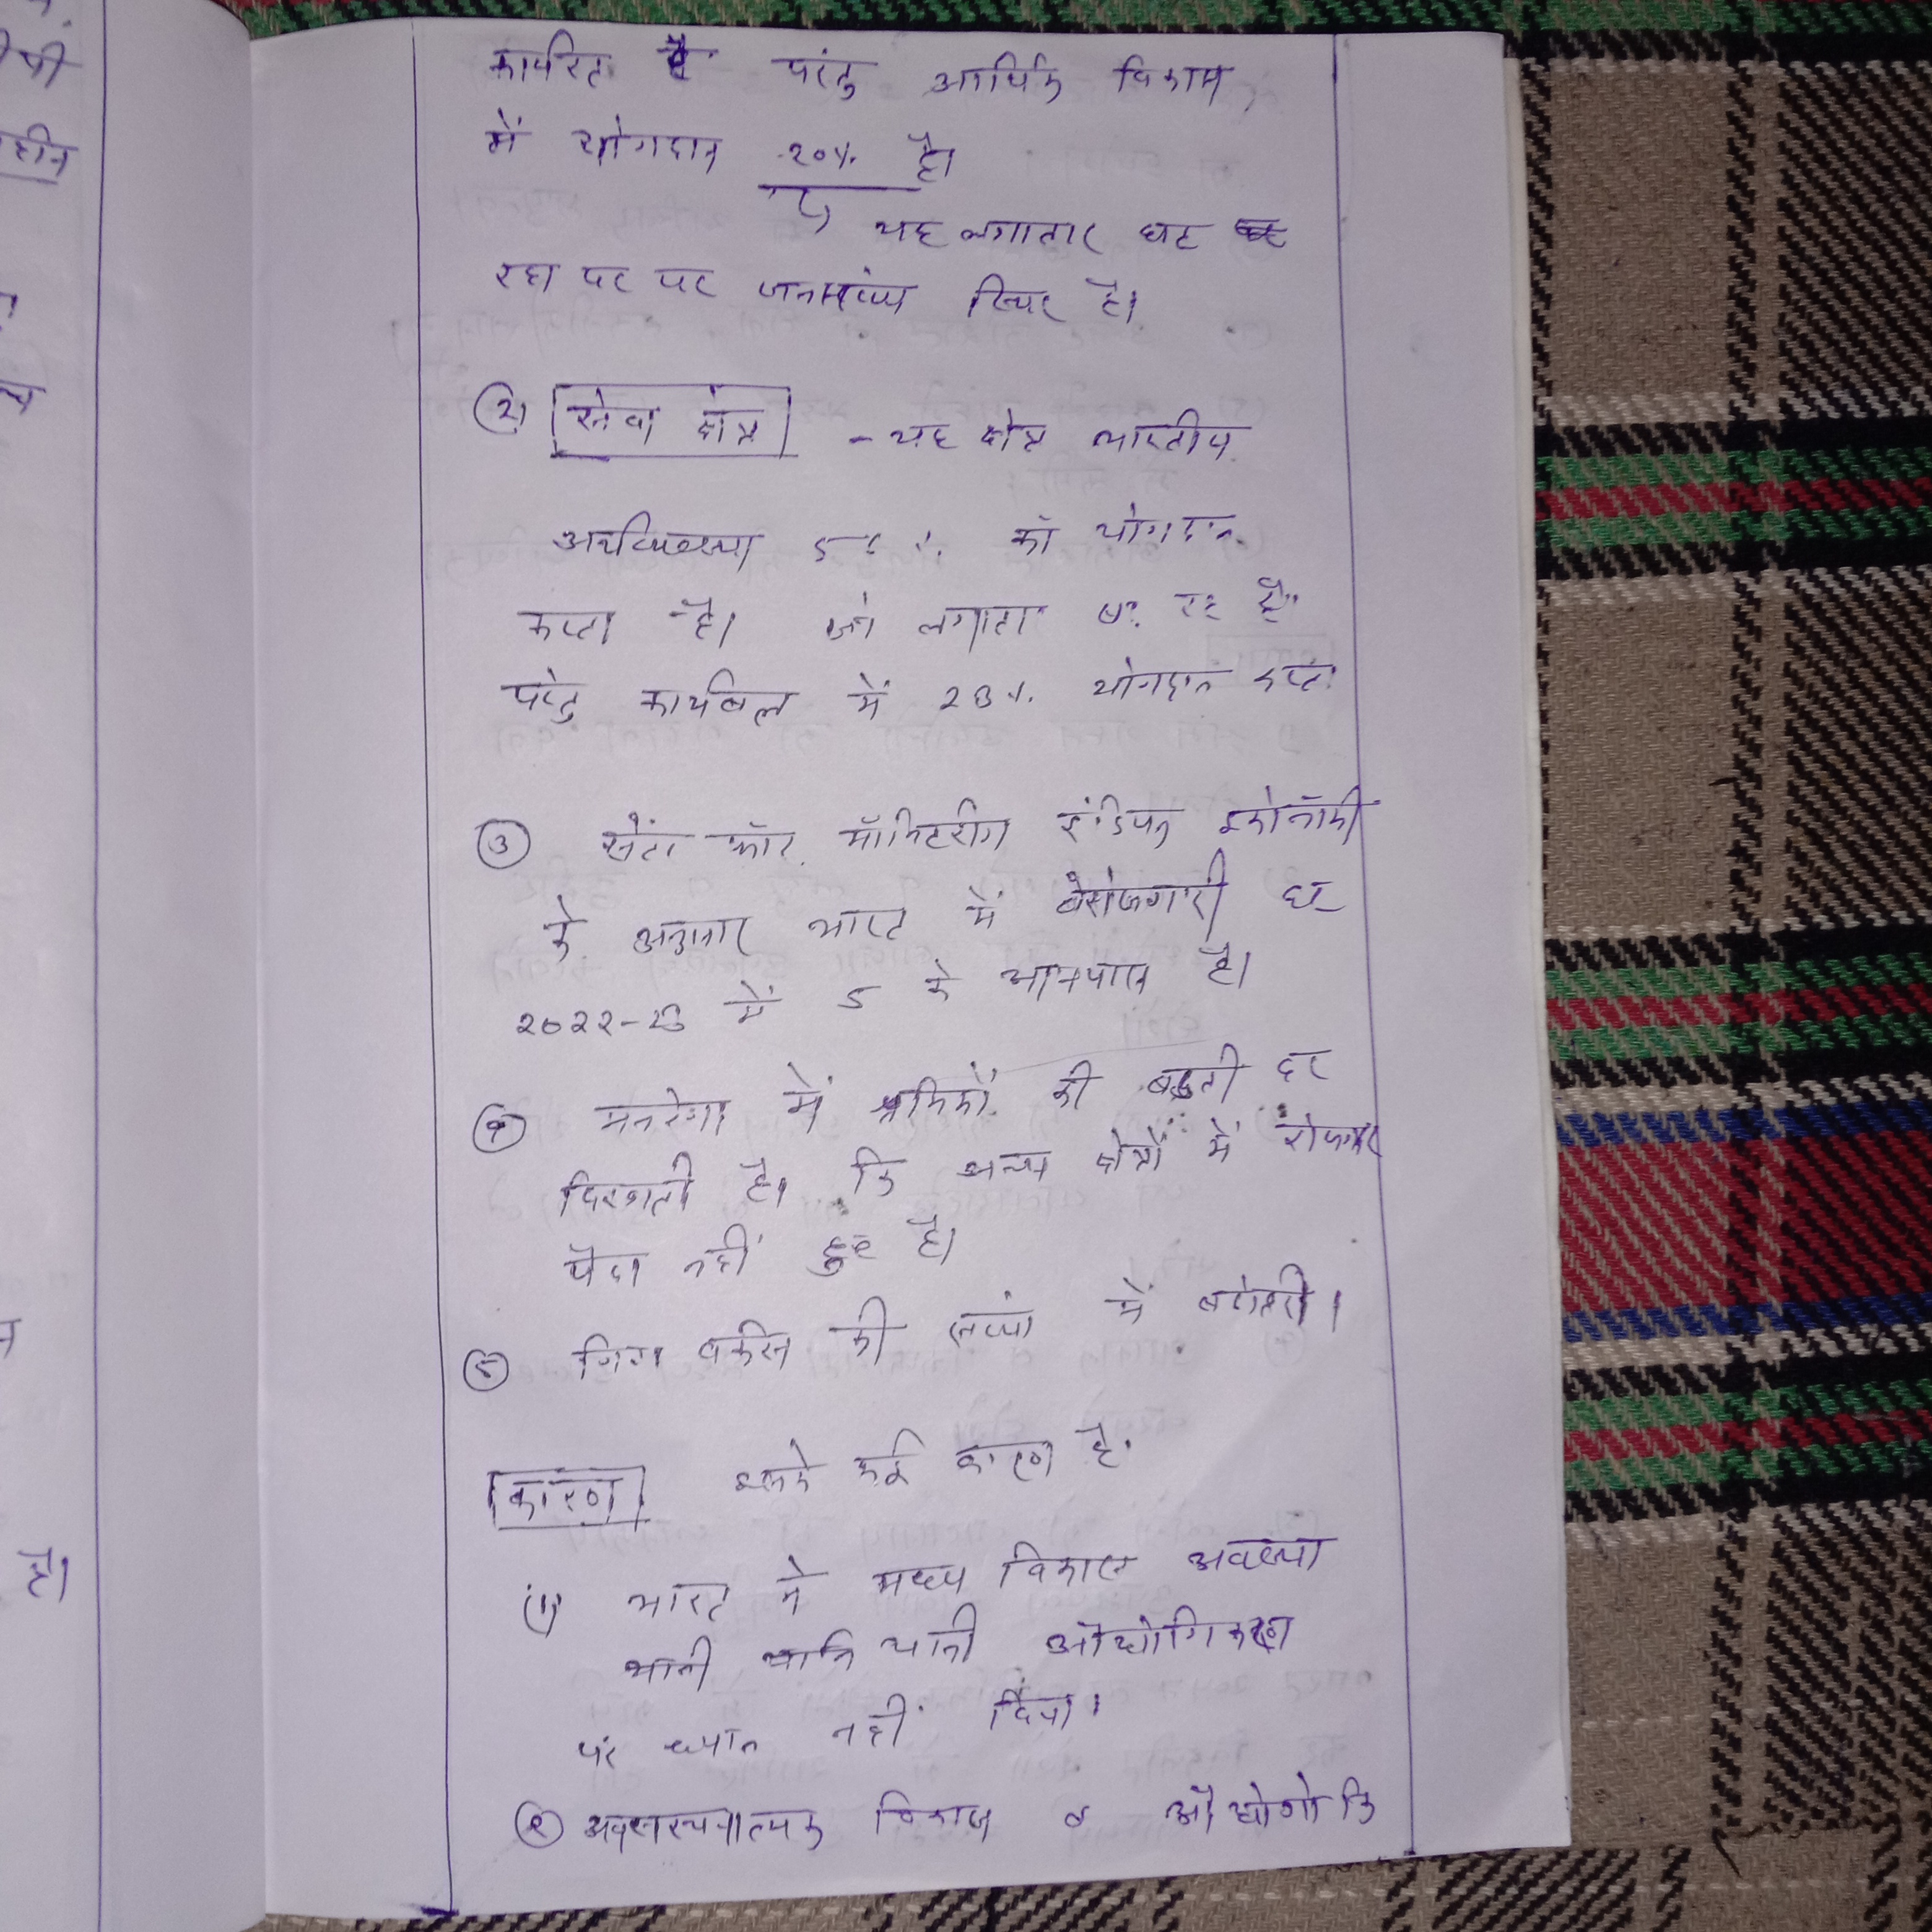 कार्यरत है परंतु आर्थिक विकास
में योगदान 20% है।
यह लगातार घट
रहा पर पर जनसंख्या स्थिर है।
(2) सेवा क्षेत्र - यह क्षेत्र भारतीय
अर्थव्यवस्था का योगदान
करता है। जो लगातार रहा है
परंतु कार्यबल में 23% योगदान करता
(3) सेंटर फॉर मॉनिटरींग इंडियन इकोनॉमी
के अनुसार भारत में बेरोजगारी दर
2022-23 में 5 के आसपास है।
(4) मनरेगा में श्रमिकों की बढ़ती दर
दिखाती है। कि अन्य क्षेत्रों में रोजगार
पैदा नहीं हुए है।
(5) गिग वर्कस की संख्या में बढोतरी।
कारण इसके कई कारण है।
(1) भारत ने मध्य विकास अवस्था
यानी औद्योगिकरण
पर ध्यान नहीं दिया।
(2) अवसंरचनात्मक विकास व औद्योगिक
है।